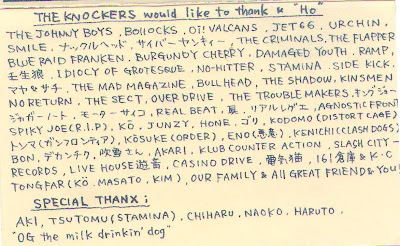 THE KNOCKERS would like to thank & "Ho"
THE JOHNNY BOYS, BOLLOCKS, Oi! VALCANS, JET66, URCHIN,
SMILE, ナックルヘッド, サイバーヤンキー, THE CRIMINALS, THE FLAPPER
BLUE RAID FRANKEN, BURGUNDY CHERRY, DAMAGED YOUTH, RAMP,
壬生狼, IDIOCY OF GROTESQUE, NO-HITTER, STAMINA, SIDE KICK,
マヤ&サチ, THE MAD MAGAZINE, BULLHEAD, THE SHADOW, KINSMEN
NO RETURN, THE SECT, OVER DRIVE, THE TROUBLE MAKERS, キングジョー
ジャガーノート, モーターサイコ, REAL BEAT, 夏, リアルレゲエ, AGNOSTIC FRONT
SPIKY JOE (R.I.P), KŌ, JUNZY, HONE, ゴリ, KODOMO (DISTORT CAGE)
トンマ(ガンフロンティア), KŌSUKE (ORDER), ENO (悪意), KENICHI (CLASH DOGS)
BON, デカンチク, 吹雪さん, AKARI, KLUB COUNTER ACTION, SLASH CITY-
RECORDS, LIVE HOUSE 遊音, CASINO DRIVE, 電気猫, 161倉庫 & K・C
TONGFAR (KŌ. MASATO, KIM), OUR FAMILY & All GREAT FRIEND & YOU!
SPECIAL THANX;
AKI, TSUTOMU (STAMINA), CHIHARU, NAOKO, HARUTO,
"OG the milk drinkin' dog"